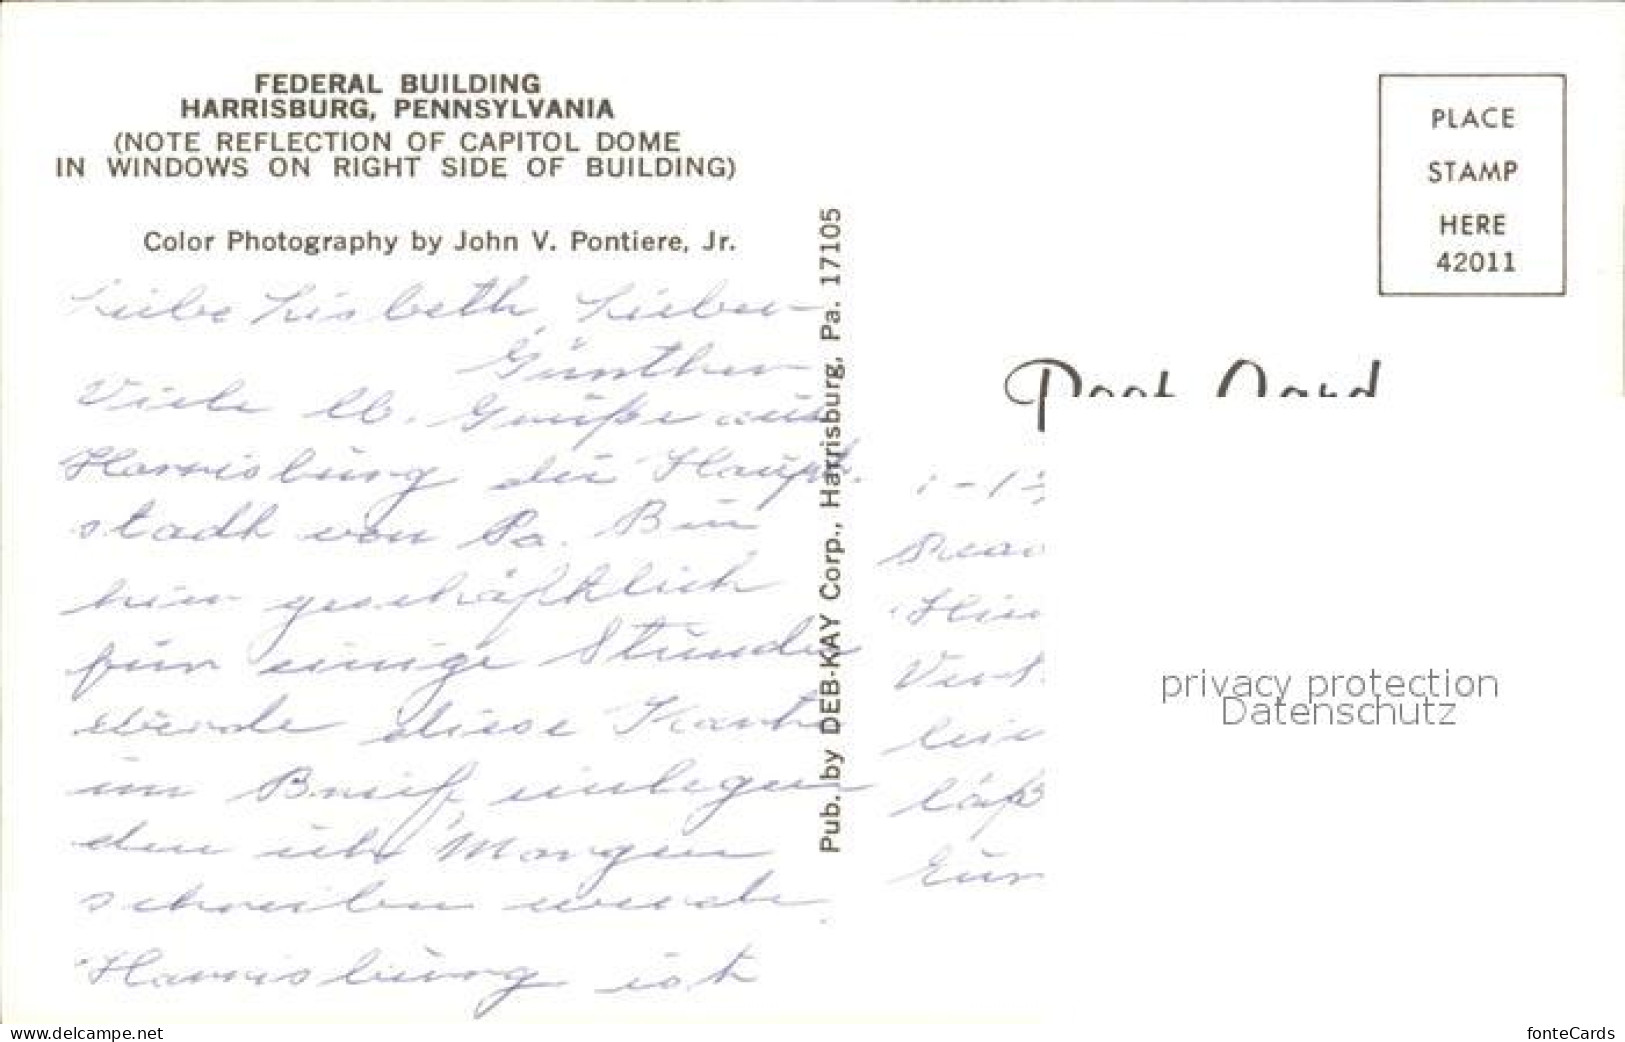 FEDERAL BUILDING
HARRISBURG, PENNSYLVANIA
(NOTE REFLECTION OF CAPITOL DOME
IN WINDOWS ON RIGHT SIDE OF BUILDING)
Color Photography by John V. Pontiere, Jr.
Liebe Lisbeth, Lieber
Günther
Viele lb. Grüße aus
Harrisburg die Haupt-
stadt von Pa. Bin
hier geschäftlich
für einige Stunden
werde diese Karte
im Brief einlegen
den ich Morgen
schreiben werde.
Harrisburg ist
Pub. by DEB-KAY Corp., Harrisburg, Pa. 17105
PLACE
STAMP
HERE
42011
Post Card
privacy protection
Datenschutz
www.delcampe.net
fonteCards